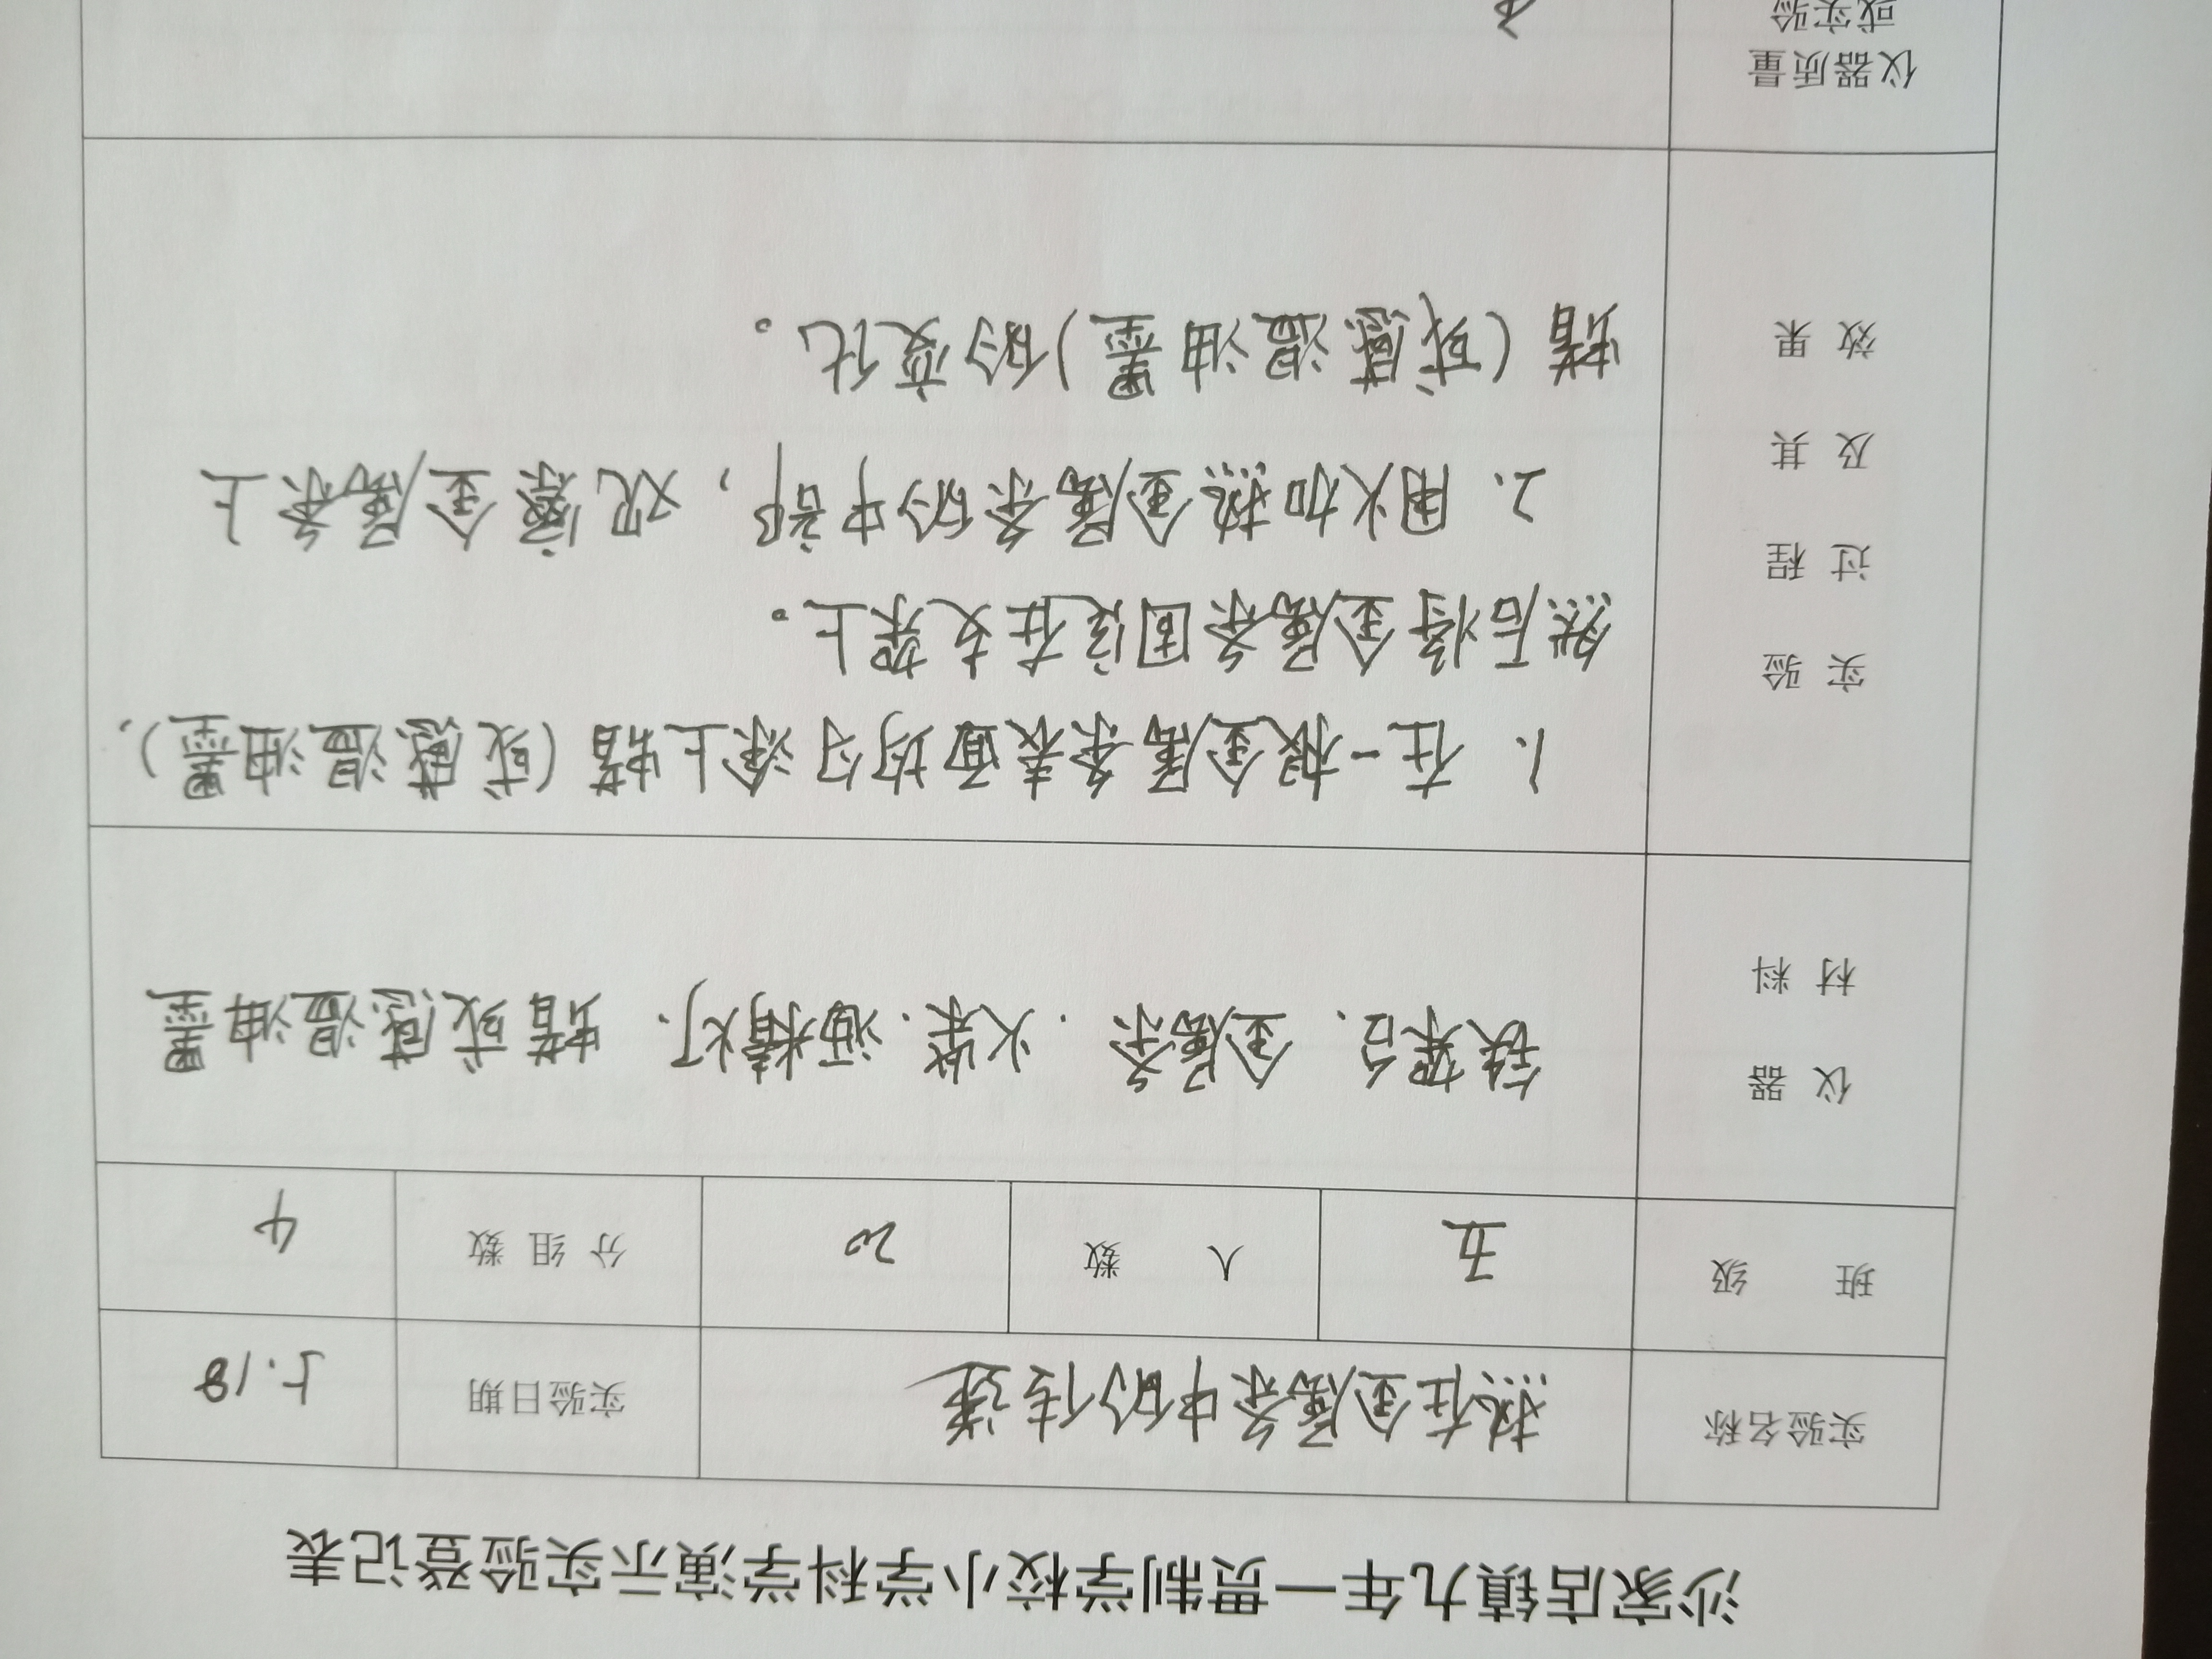 沙家店镇九年一贯制学校小学科学演示实验登记表
实验名称 热在金属条中的传递 实验日期 5.18
班 级 五 人 数 20 分组数 4
仪器
材料
铁架台. 金属条. 火柴. 酒精灯. 蜡或感温油墨
实验
过程
及其
效果
1. 在一根金属条表面均匀涂上蜡(或感温油墨),
然后将金属条固定在支架上。
2. 用火加热金属条的中部, 观察金属条上
蜡(或感温油墨)的变化。
仪器质量
或实验